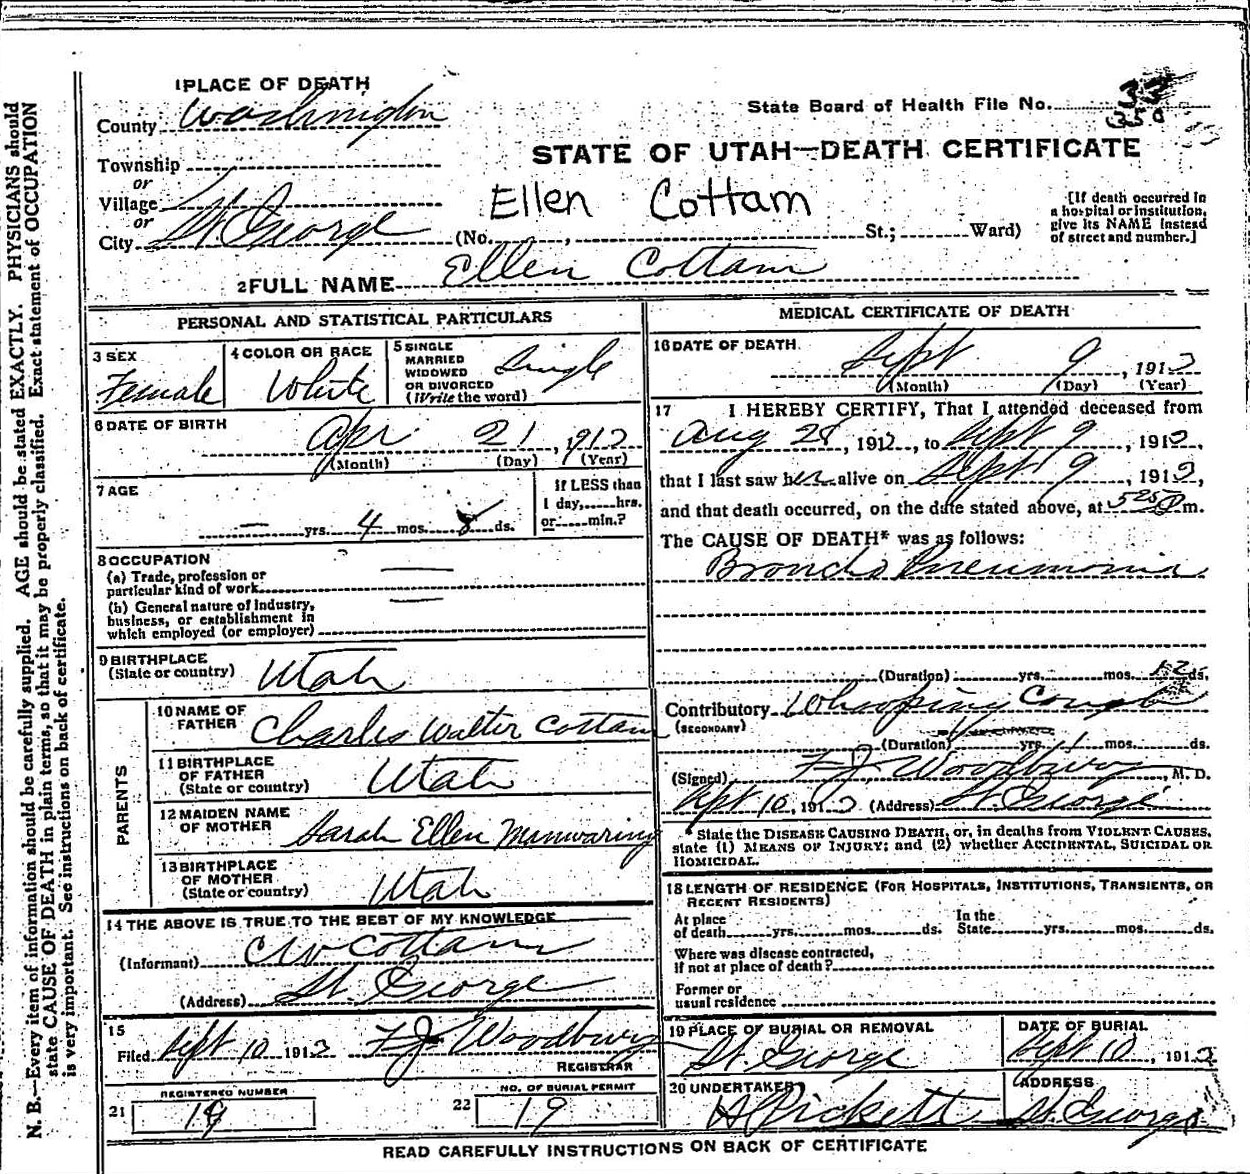 1 PLACE OF DEATH
County Washington
State Board of Health File No. 33
350
STATE OF UTAH—DEATH CERTIFICATE
Township
or
Village
or
City St George
Ellen Cottam
(No. , St.; Ward)
[If death occurred in a hospital or institution, give its NAME instead of street and number.]
2 FULL NAME Ellen Cottam
PERSONAL AND STATISTICAL PARTICULARS
3 SEX
Female
4 COLOR OR RACE
White
5 SINGLE
MARRIED
WIDOWED
OR DIVORCED
(Write the word)
Single
6 DATE OF BIRTH
Apr 21, 1912
(Month) (Day) (Year)
7 AGE
— yrs. 4 mos. ds.
If LESS than
1 day, hrs.
or min.?
8 OCCUPATION
(a) Trade, profession or
particular kind of work —
(b) General nature of Industry,
business, or establishment in
which employed (or employer) —
9 BIRTHPLACE
(State or country) Utah
PARENTS
10 NAME OF
FATHER Charles Walter Cottam
11 BIRTHPLACE
OF FATHER
(State or country) Utah
12 MAIDEN NAME
OF MOTHER Sarah Ellen Manwaring
13 BIRTHPLACE
OF MOTHER
(State or country) Utah
14 THE ABOVE IS TRUE TO THE BEST OF MY KNOWLEDGE
(Informant) C W Cottam
(Address) St. George
15
Filed Sept 10 1912 F J Woodbury
REGISTRAR
REGISTERED NUMBER
21 19
NO. OF BURIAL PERMIT
22 19
MEDICAL CERTIFICATE OF DEATH
16 DATE OF DEATH
Sept 9, 1912
(Month) (Day) (Year)
17 I HEREBY CERTIFY, That I attended deceased from
Aug 28, 1912, to Sept 9, 1912,
that I last saw her alive on Sept 9, 1912,
and that death occurred, on the date stated above, at 5 25 P m.
The CAUSE OF DEATH* was as follows:
Broncho Pneumonia
(Duration) yrs. mos. 12 ds.
Contributory Whooping Cough
(SECONDARY)
(Duration) yrs. 1 mos. ds.
(Signed) F J Woodbury, M. D.
Sept 10, 1912 (Address) St. George
*State the DISEASE CAUSING DEATH, or, in deaths from VIOLENT CAUSES,
state (1) MEANS OF INJURY; and (2) whether ACCIDENTAL, SUICIDAL OR
HOMICIDAL.
18 LENGTH OF RESIDENCE (FOR HOSPITALS, INSTITUTIONS, TRANSIENTS, OR
RECENT RESIDENTS)
At place
of death yrs. mos. ds.
In the
State yrs. mos. ds.
Where was disease contracted,
if not at place of death?
Former or
usual residence
19 PLACE OF BURIAL OR REMOVAL
St. George
DATE OF BURIAL
Sept 10, 1912
20 UNDERTAKER
Pickett
ADDRESS
St. George
READ CAREFULLY INSTRUCTIONS ON BACK OF CERTIFICATE
N. B.—Every item of information should be carefully supplied. AGE should be stated EXACTLY. PHYSICIANS should
state CAUSE OF DEATH in plain terms, so that it may be properly classified. Exact statement of OCCUPATION
is very important. See instructions on back of certificate.